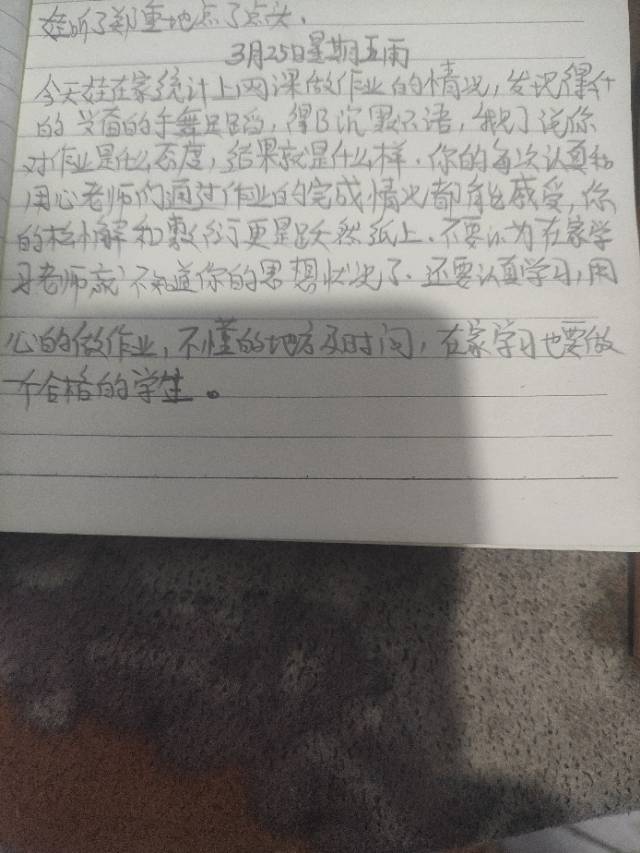 娃听了郑重地点了点头.
3月25日星期五雨
今天娃在家统计上网课做作业的情况,发现得A
的兴奋的手舞足蹈,得B沉默不语,我说你
对作业是什么态度,结果就是什么样.你的每次认真和
用心老师们通过作业的完成情况都能感受,你
的松懈和敷衍更是跃然纸上.不要以为在家学
习老师就不知道你的思想状况了.还要认真学习,用
心的做作业,不懂的地方及时问,在家学习也要做
一个合格的学生。